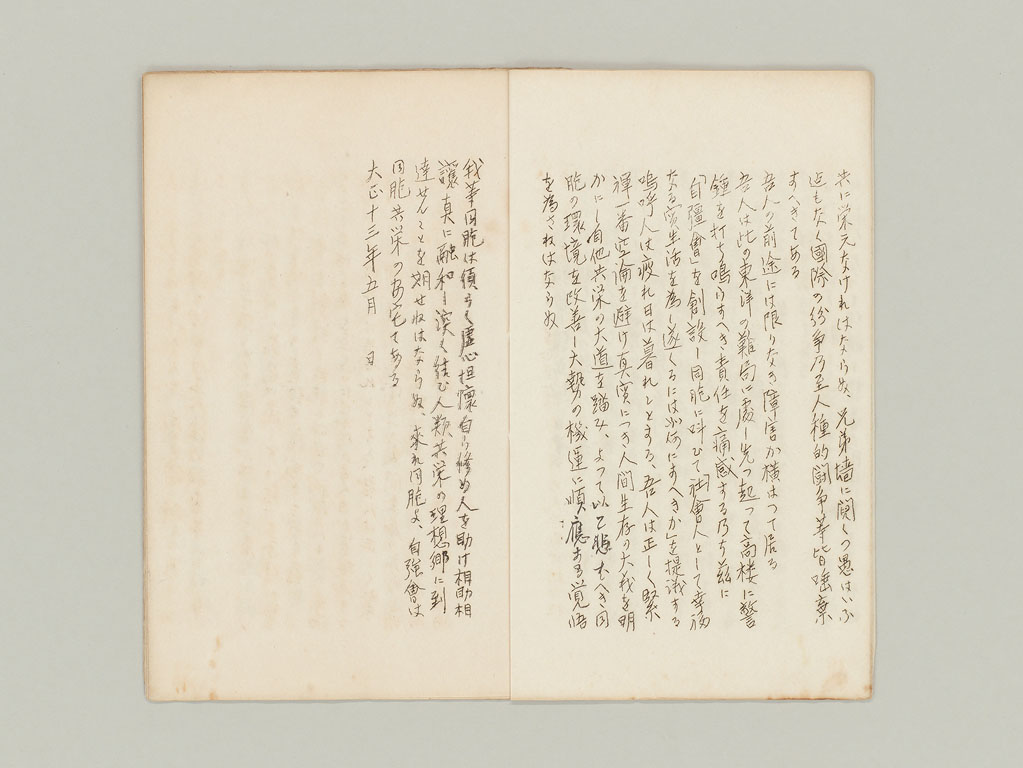 共に栄元なけれはならぬ、兄弟墻に鬩くの愚はいふ
迄もなく國際の紛争乃至人種的闘争華皆唾棄
すへきてある
吾人の前途には限りなき障害か横はつて居る
吾人は此の東洋の難局に處し先つ起つて高楼に警
鐘を打ち鳴らすへき責任を痛感する乃ち茲に
「自彊會」を創設し同胞に呌ひて社會人として幸福
なる實生活を為し遂くるには如何にすへきか」を提議する
嗚呼人は疲れ日は暮れんとする、吾人は正しく緊
褌一番空論を避け真実につき人間生存の大義を明
かにし自他共栄の大道を踏み、よつて以て悲むへき同
胞の環境を改善し大勢の機運に順應する覚悟
を為さねはならぬ
我等同胞は須らく虚心坦懐自ら修め人を助け相助相
譲真に融和し深く結ひ人類共栄の理想郷に到
達せんことを期せねはならぬ、來れ同胞よ、自強會は
同胞共栄の安宅である
大正十三年五月　日